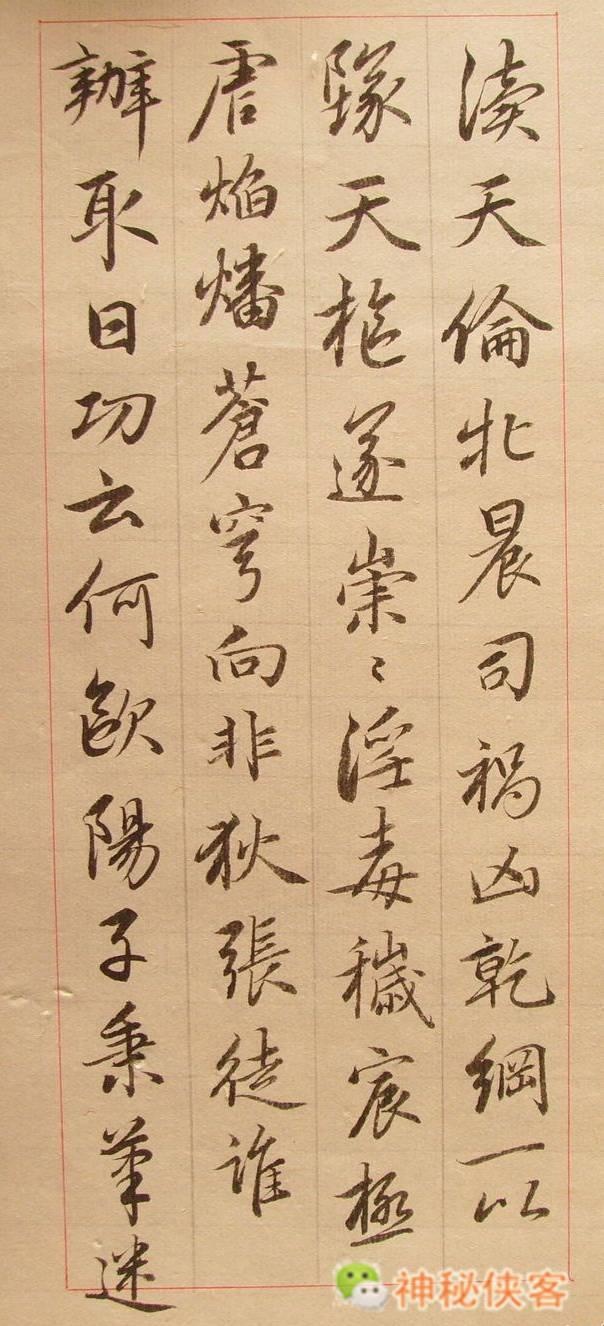 渎天倫牝晨司祸凶乾綱一以
隊天枢遂崇〻淫毒穢宸極
虐焰燔蒼穹向非狄張徒誰
辦取日功云何歐陽子秉筆迷
神秘侠客